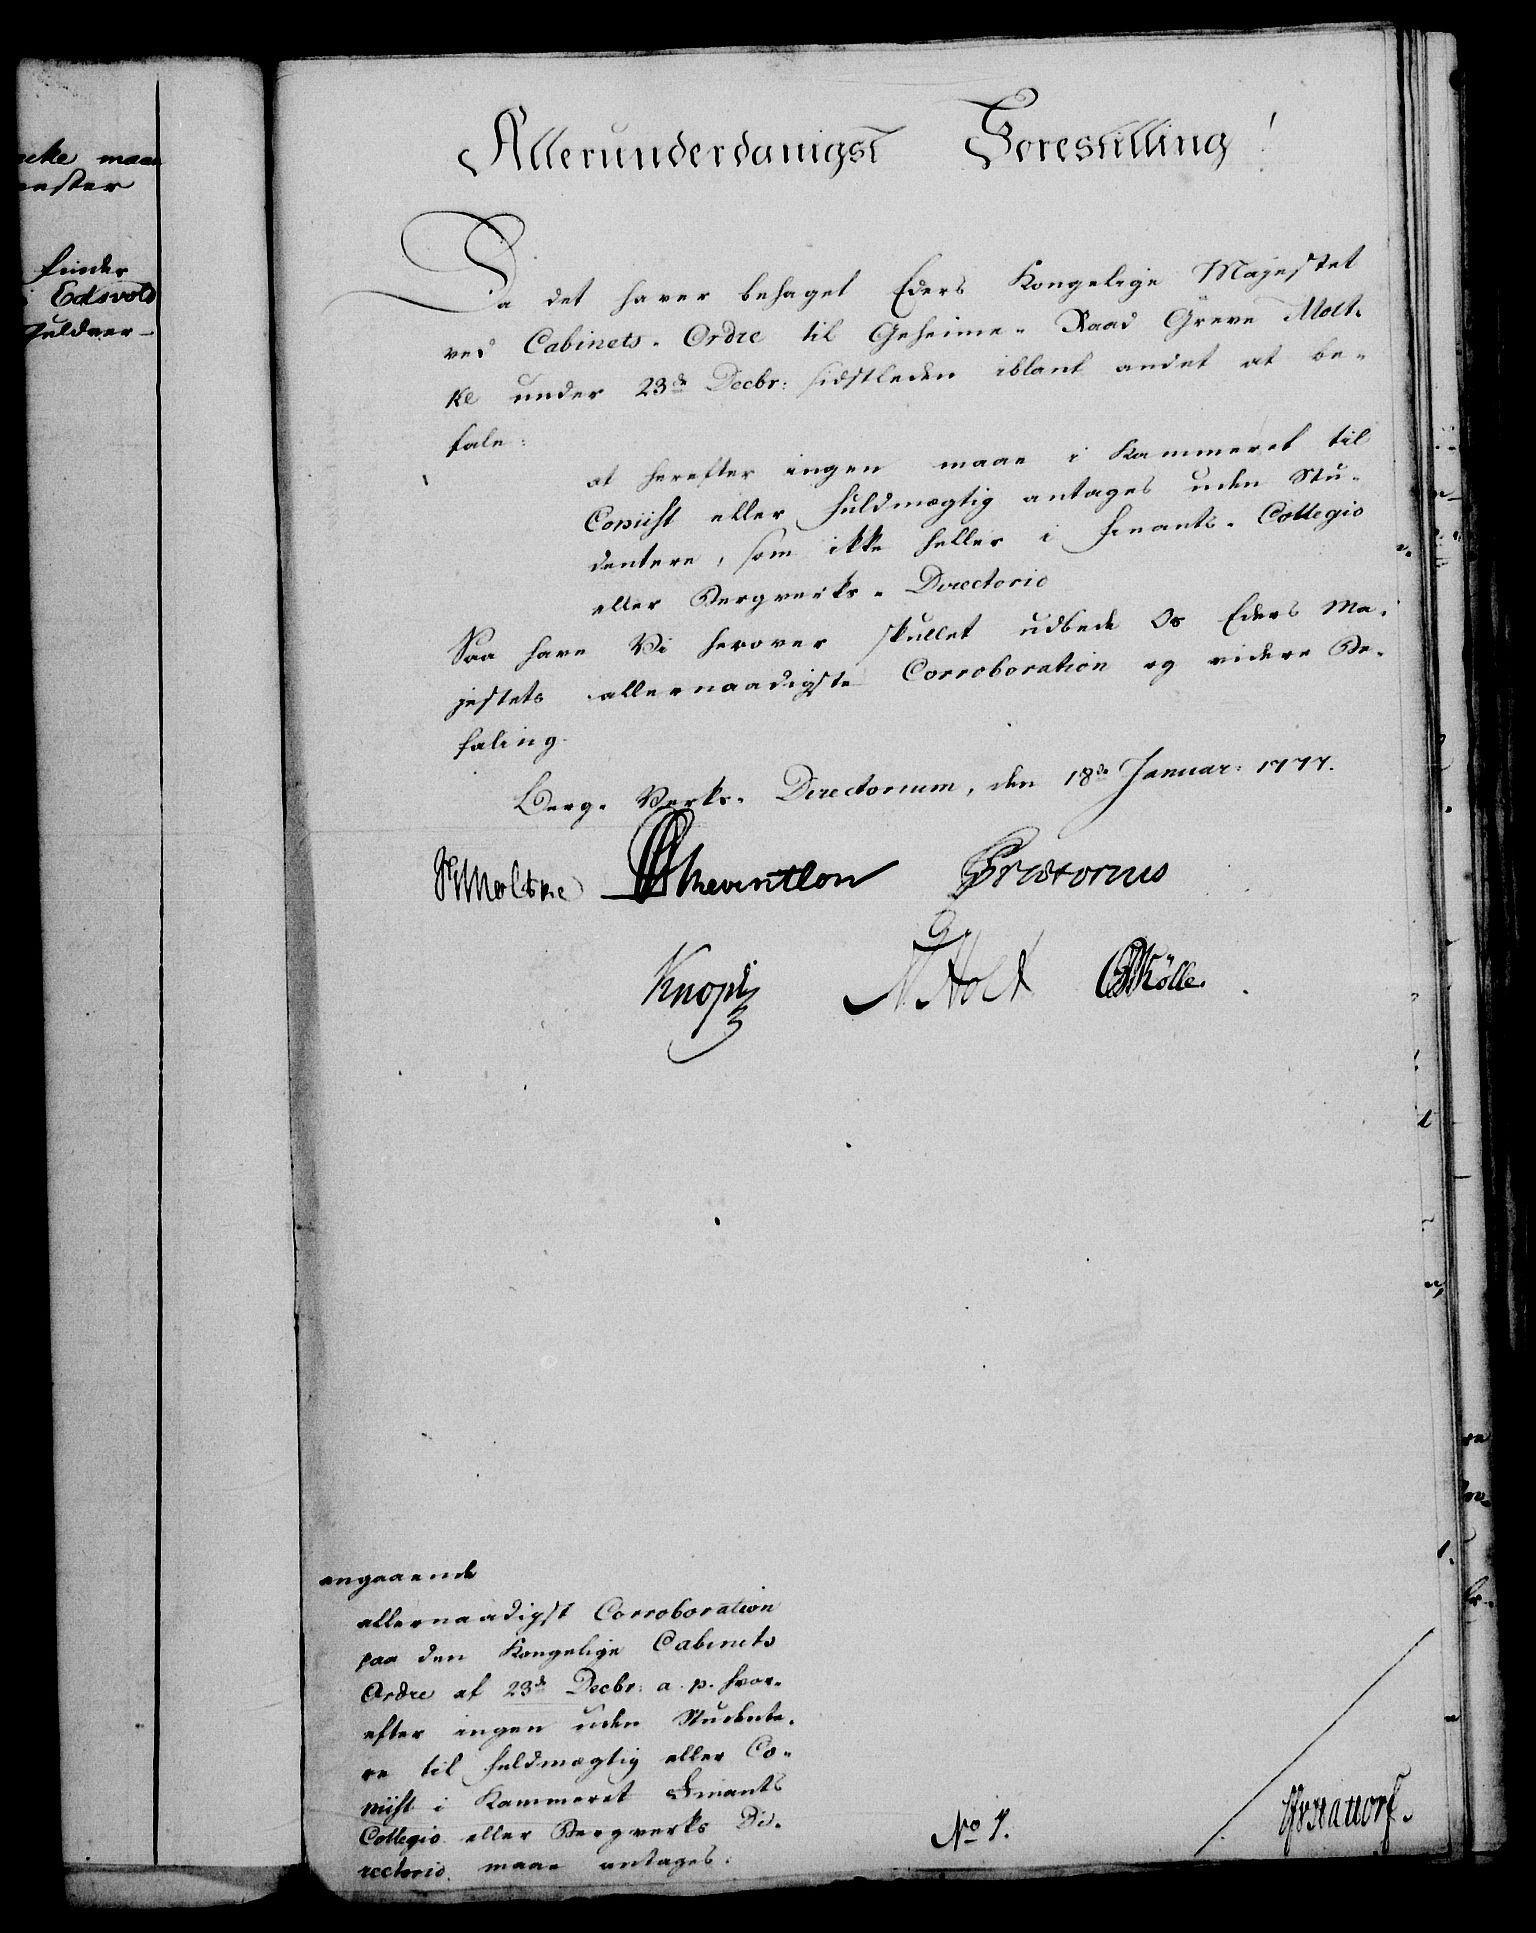 cke maae
ester
finder
Edsvold
Guldver-
Allerunderdanigst Forestilling!
Da det haver behaget Eders Kongelige Majestet
ved Cabinets-Ordre til Geheime-Raad Greve Molt-
ke under 23de Decbr: sidstleden iblant andet at be-
fale:
at herefter ingen maae i Kammeret til
Copiist eller Fuldmægtig antages uden Stu-
dentere, som ikke heller i Finants-Collegio
eller Bergverks-Directorio
Saa have Vi herover skullet udbede Os Eders Ma-
jestets allernaadigste Corroboration og videre Be-
faling.
Berg-Verks-Directorium, den 18de Januar: 1777.
Moltke Reventlow Prætorius
Knoph Holt Mölle.
angaaende
allernaadigst Corroboration
paa den Kongelige Cabinets
Ordre af 23de Decbr: a. p. hvor-
efter ingen uden Studente-
re til Fuldmægtig eller Co-
piist i Kammeret Finants
Collegio eller Bergverks Di-
rectorio maae antages.
No 7.